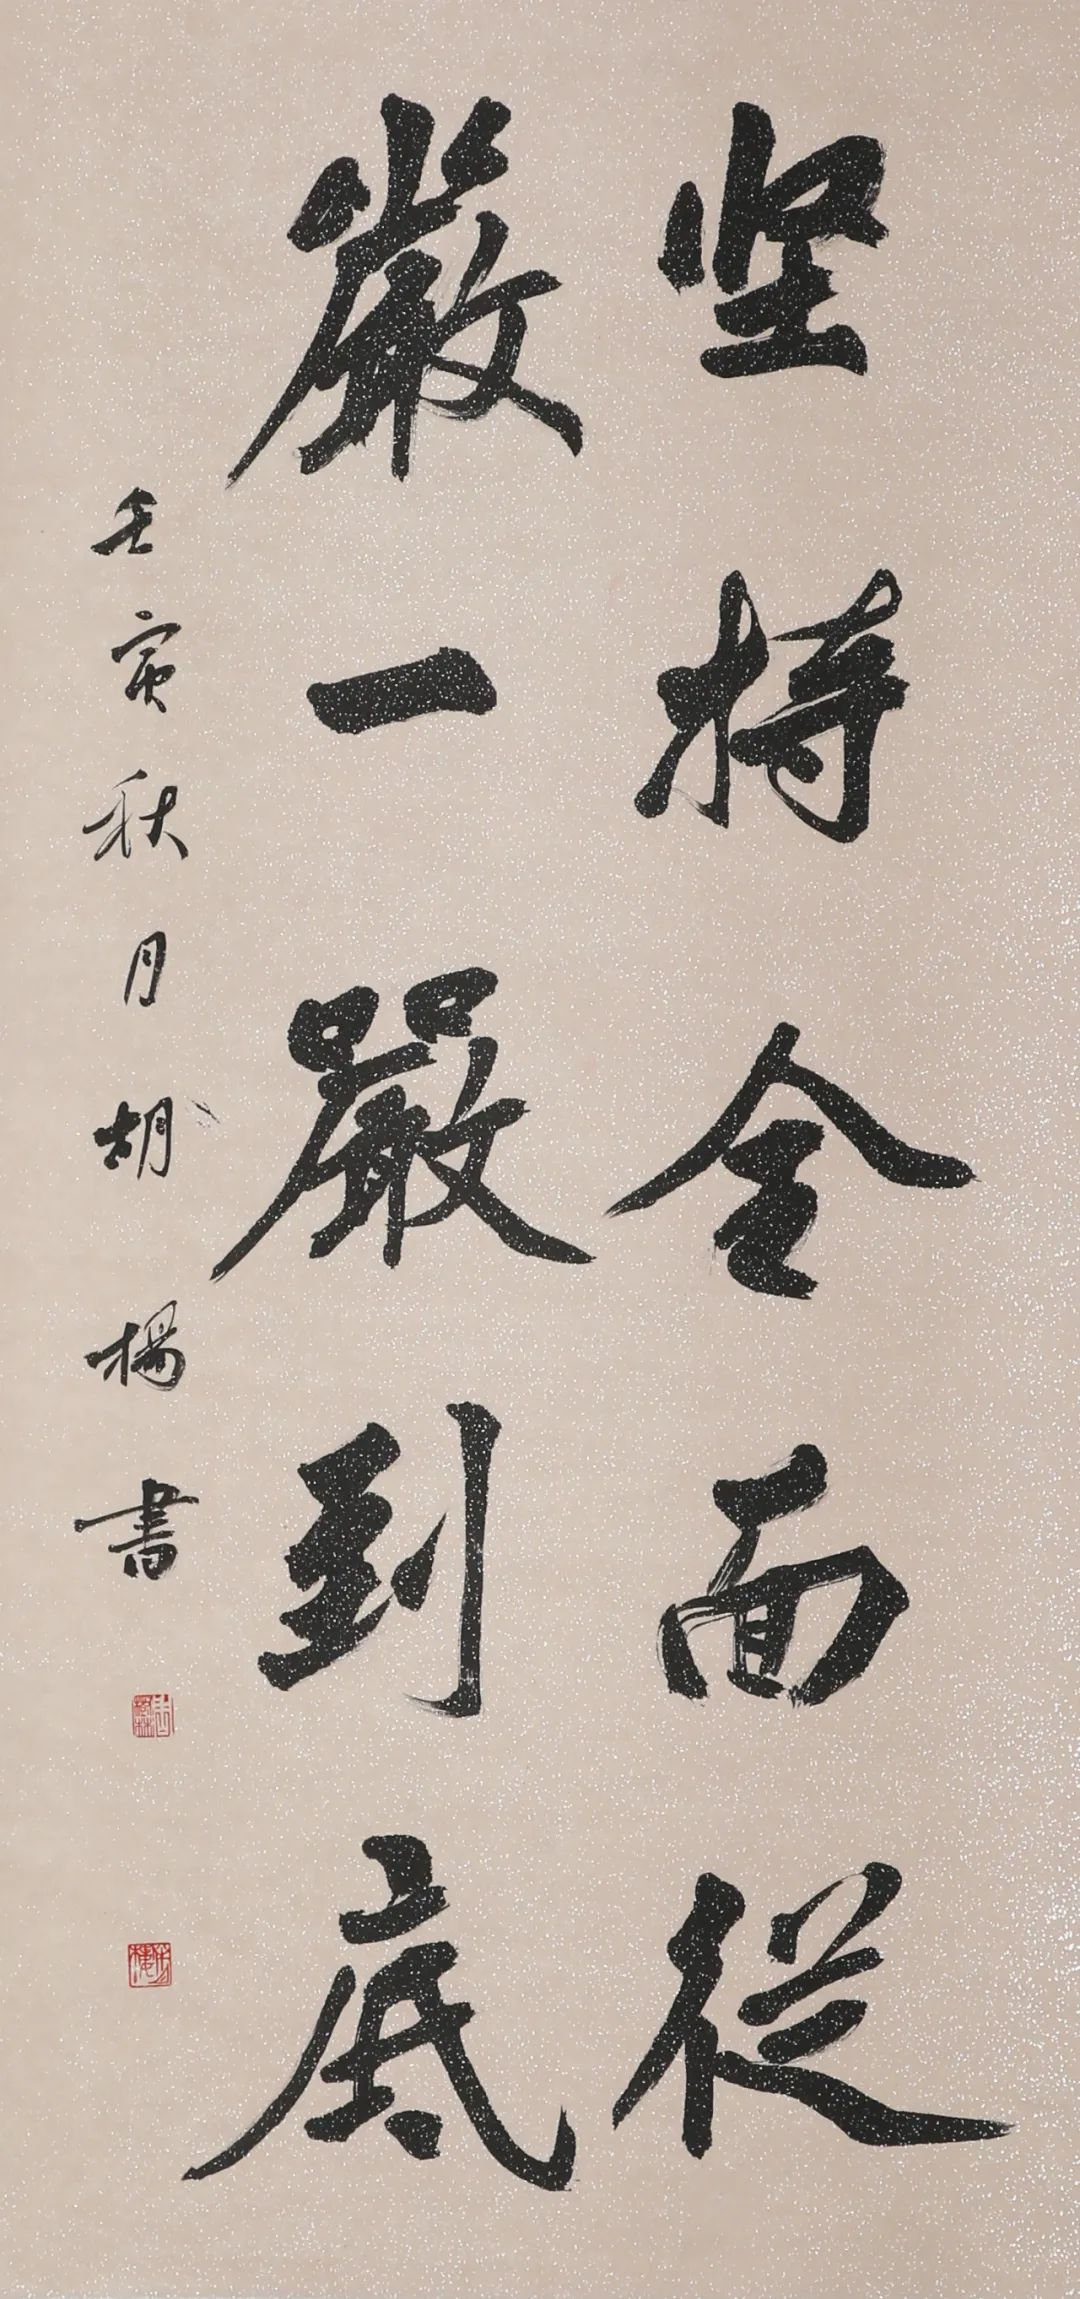 坚持全面從
嚴一嚴到底
壬寅秋月胡楊書